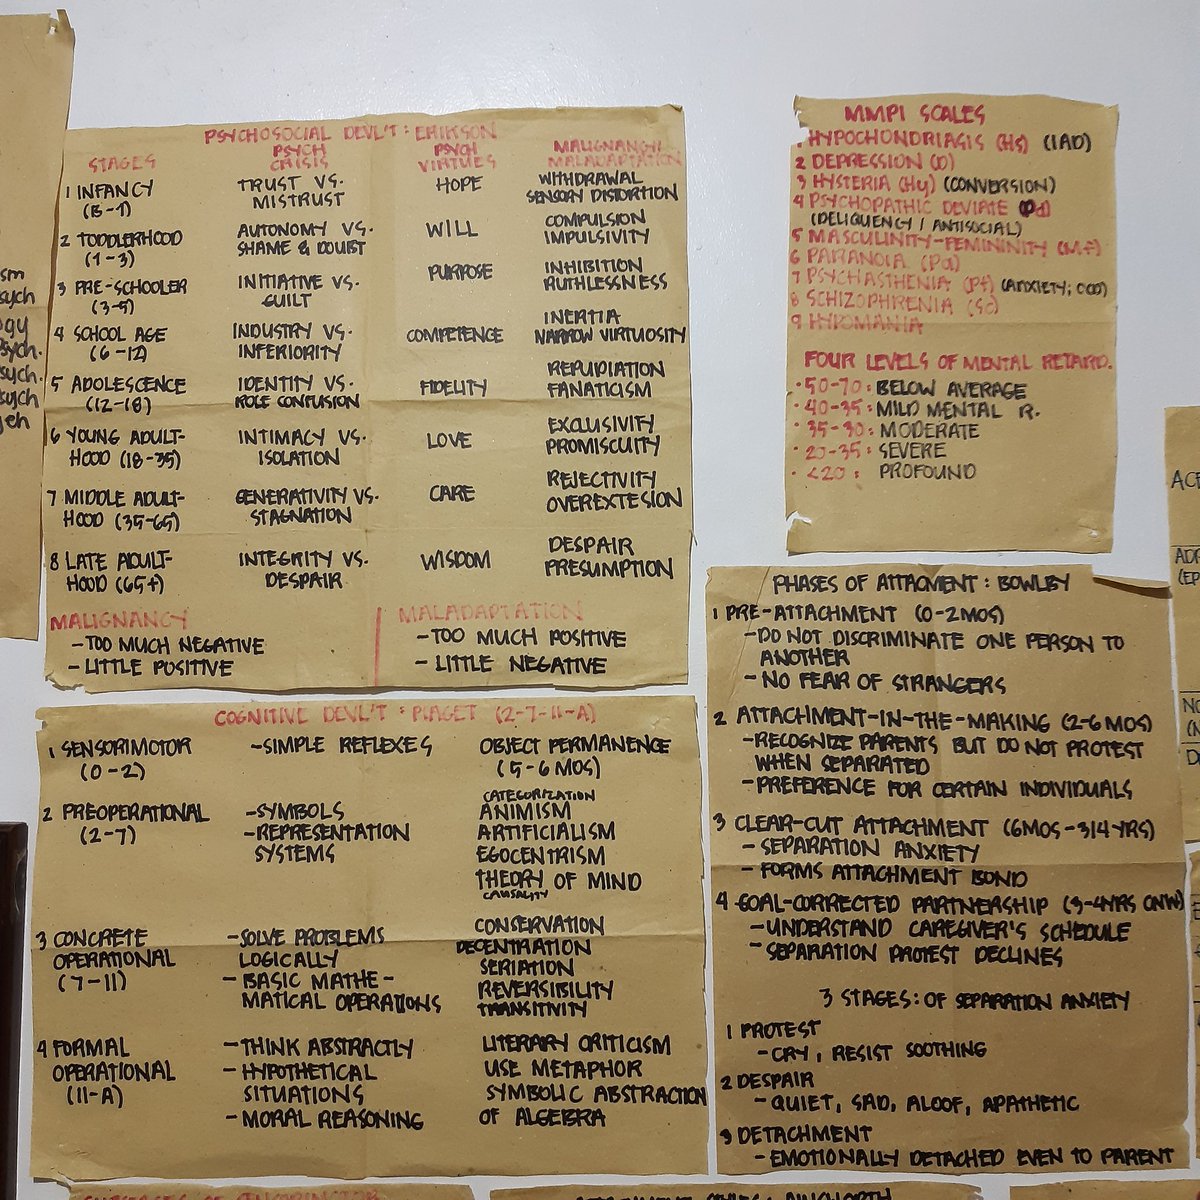 sm
sych
ogy
Psych.
sych.
sych
yeh
PSYCHOSOCIAL DEVL'T : ERIKSON
STAGES PSYCH CRISIS PSYCH VIRTUES MALIGNANCY/ MALADAPTATION
1 INFANCY TRUST VS. HOPE WITHDRAWAL
(B-1) MISTRUST SENSORY DISTORTION
2 TODDLERHOOD AUTONOMY VS. WILL COMPULSION
(1-3) SHAME & DOUBT IMPULSIVITY
3 PRE-SCHOOLER INITIATIVE VS. PURPOSE INHIBITION
(3-5) GUILT RUTHLESSNESS
4 SCHOOL AGE INDUSTRY VS. COMPETENCE INERTIA
(6-12) INFERIORITY NARROW VIRTUOSITY
5 ADOLESCENCE IDENTITY VS. FIDELITY REPUDIATION
(12-18) ROLE CONFUSION FANATICISM
6 YOUNG ADULT- INTIMACY VS. LOVE EXCLUSIVITY
HOOD (18-35) ISOLATION PROMISCUITY
7 MIDDLE ADULT- GENERATIVITY VS. CARE REJECTIVITY
HOOD (35-65) STAGNATION OVEREXTESION
8 LATE ADULT- INTEGRITY VS. WISDOM DESPAIR
HOOD (65+) DESPAIR PRESUMPTION
MALIGNANCY
- TOO MUCH NEGATIVE
- LITTLE POSITIVE
MALADAPTATION
- TOO MUCH POSITIVE
- LITTLE NEGATIVE
MMPI SCALES
1 HYPOCHONDRIASIS (Hs) (IAD)
2 DEPRESSION (D)
3 HYSTERIA (Hy) (CONVERSION)
4 PSYCHOPATHIC DEVIATE (Pd)
(DELIQUENCY / ANTISOCIAL)
5 MASCULINITY-FEMININITY (Mf)
6 PARANOIA (Pa)
7 PSYCHASTHENIA (Pt) (ANXIETY; OCD)
8 SCHIZOPHRENIA (Sc)
9 HYPOMANIA
FOUR LEVELS OF MENTAL RETARD.
• 50-70 : BELOW AVERAGE
• 40-35 : MILD MENTAL R.
• 35-30 : MODERATE
• 20-35 : SEVERE
• <20 : PROFOUND
COGNITIVE DEVL'T : PIAGET (2-7-11-A)
1 SENSORIMOTOR - SIMPLE REFLEXES OBJECT PERMANENCE
(0-2) (5-6 MOS)
2 PREOPERATIONAL
(2-7)
- SYMBOLS
- REPRESENTATION
SYSTEMS
CATEGORIZATION
ANIMISM
ARTIFICIALISM
EGOCENTRISM
THEORY OF MIND
CAUSALITY
3 CONCRETE
OPERATIONAL
(7-11)
- SOLVE PROBLEMS
LOGICALLY
- BASIC MATHE-
MATICAL OPERATIONS
CONSERVATION
DECENTRATION
SERIATION
REVERSIBILITY
TRANSITIVITY
4 FORMAL
OPERATIONAL
(11-A)
- THINK ABSTRACTLY
- HYPOTHETICAL
SITUATIONS
- MORAL REASONING
LITERARY CRITICISM
USE METAPHOR
SYMBOLIC ABSTRACTION
OF ALGEBRA
PHASES OF ATTACMENT : BOWLBY
1 PRE-ATTACHMENT (0-2MOS)
- DO NOT DISCRIMINATE ONE PERSON TO
ANOTHER
- NO FEAR OF STRANGERS
2 ATTACHMENT-IN-THE-MAKING (2-6 MOS)
- RECOGNIZE PARENTS BUT DO NOT PROTEST
WHEN SEPARATED
- PREFERENCE FOR CERTAIN INDIVIDUALS
3 CLEAR-CUT ATTACHMENT (6MOS-3/4YRS)
- SEPARATION ANXIETY
- FORMS ATTACHMENT BOND
4 GOAL-CORRECTED PARTNERSHIP (3-4YRS ONW)
- UNDERSTAND CAREGIVER'S SCHEDULE
- SEPARATION PROTEST DECLINES
3 STAGES: OF SEPARATION ANXIETY
1 PROTEST
- CRY, RESIST SOOTHING
2 DESPAIR
- QUIET, SAD, ALOOF, APATHETIC
3 DETACHMENT
- EMOTIONALLY DETACHED EVEN TO PARENT